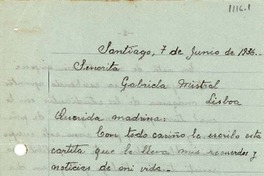 1116.1
Santiago, 7 de Junio de 1936.
Señorita
Gabriela Mistral
Lisboa
Querida madrina:
Con todo cariño le escribo esta
cartita que le lleva mis recuerdos y
noticias de mi vida.